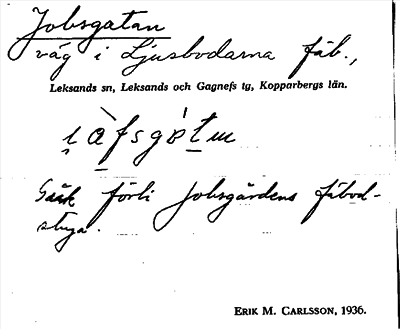 Jobsgatan
väg i Ljusbodarna fäb.,
Leksands sn, Leksands och Gagnefs tg, Kopparbergs län.
Gick förbi Jobsgårdens fäbod-
stuga.
ERIK M. CARLSSON, 1936.